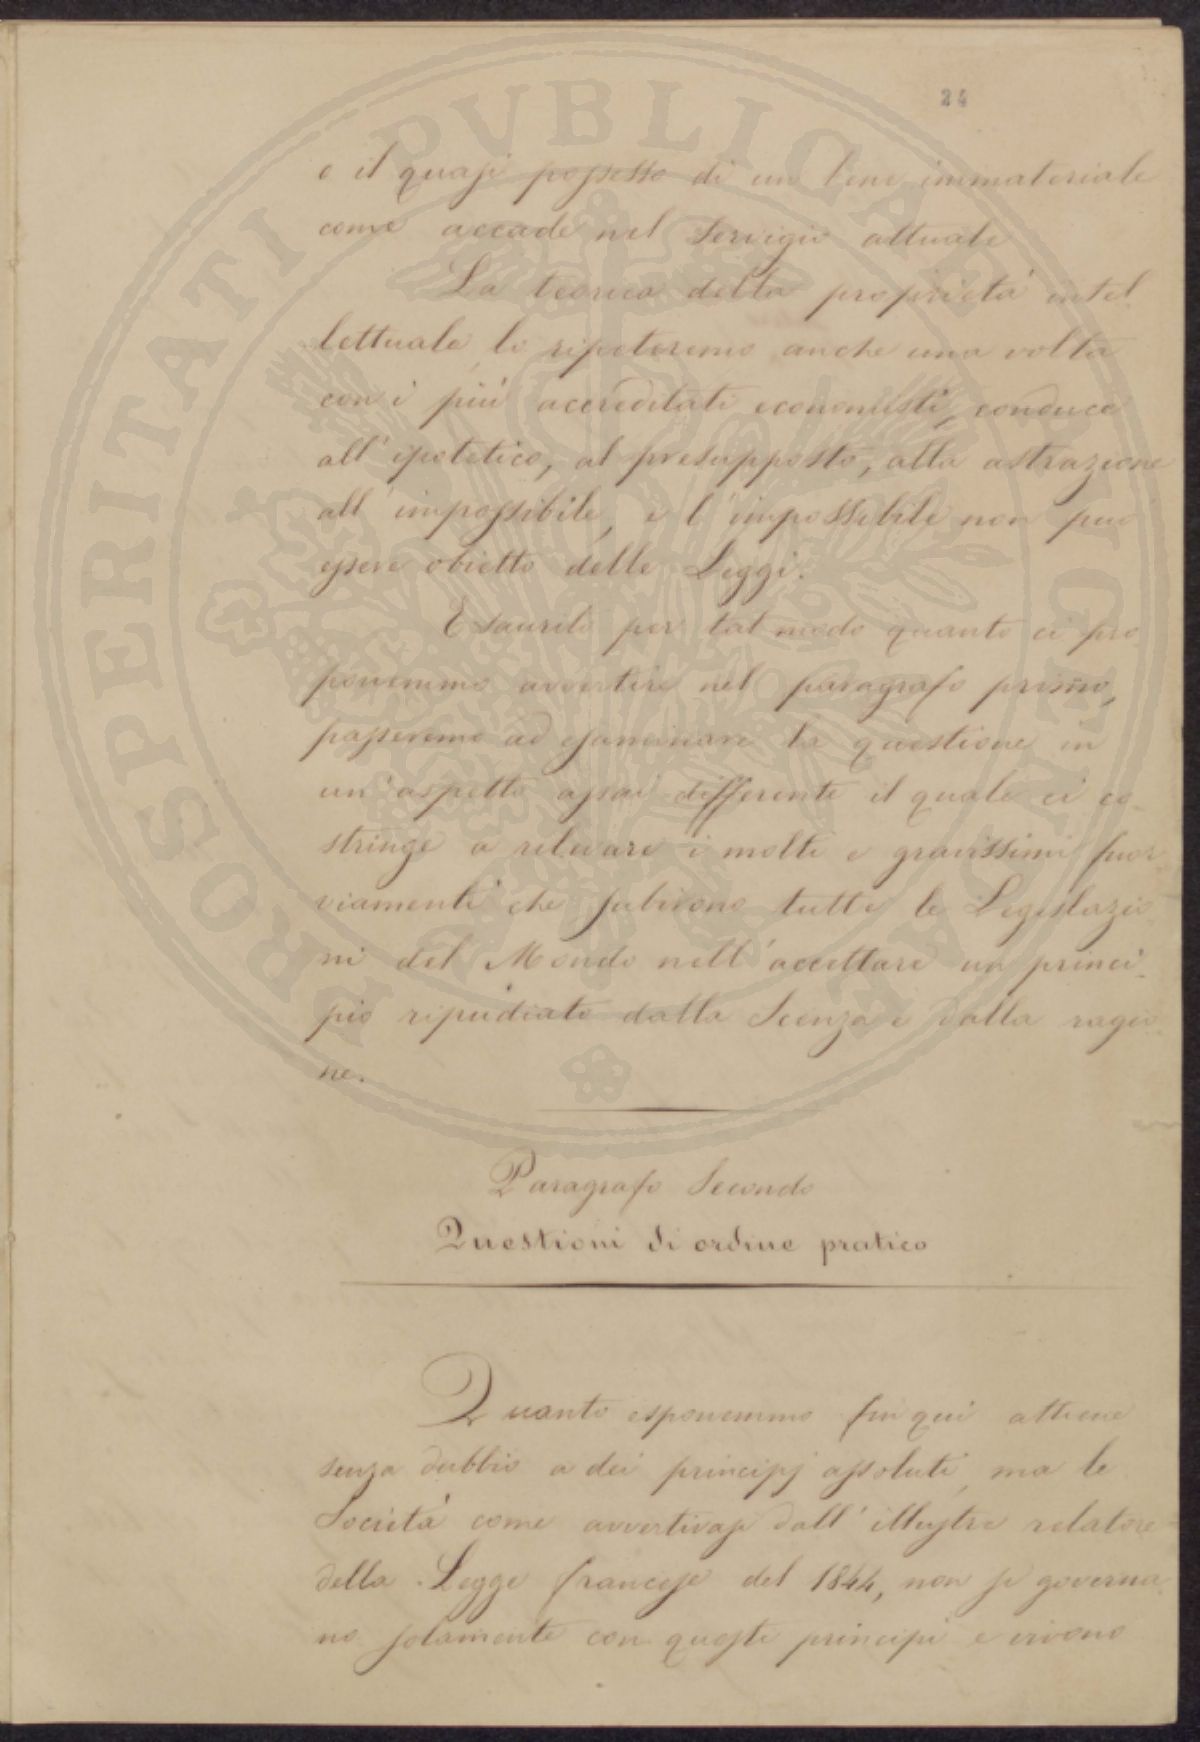 24
PROSPERITATI PVBLICAE AVGENDAE
e il quasi possesso di un bene immateriale
come accade nel servigio attuale
La teorica della proprietà intel
lettuale lo ripeteremo anche una volta
con i più accreditati economisti, conduce
all'ipotetico, al presupposto, alla astrazione
all'impossibile, e l'impossibile non può
essere obietto delle Leggi.
Esaurito per tal modo quanto ci pro
ponemmo avvertire nel paragrafo primo,
passeremo ad esaminare la questione in
un'aspetto assai differente il quale ci co-
stringe a rilevare i molti e gravissimi fuor
viamenti che subirono tutte le Legislazio
ni del Mondo nell'accettare un princi-
pio ripudiato dalla Scenza e dalla ragio
ne.
Paragrafo Secondo
Questioni di ordine pratico
Quanto esponemmo fin qui attiene
senza dubbio a dei principj assoluti, ma le
Società come avvertivasi dall'illustre relatore
della Legge francese del 1844, non si governa
no solamente con questi principi e vivono